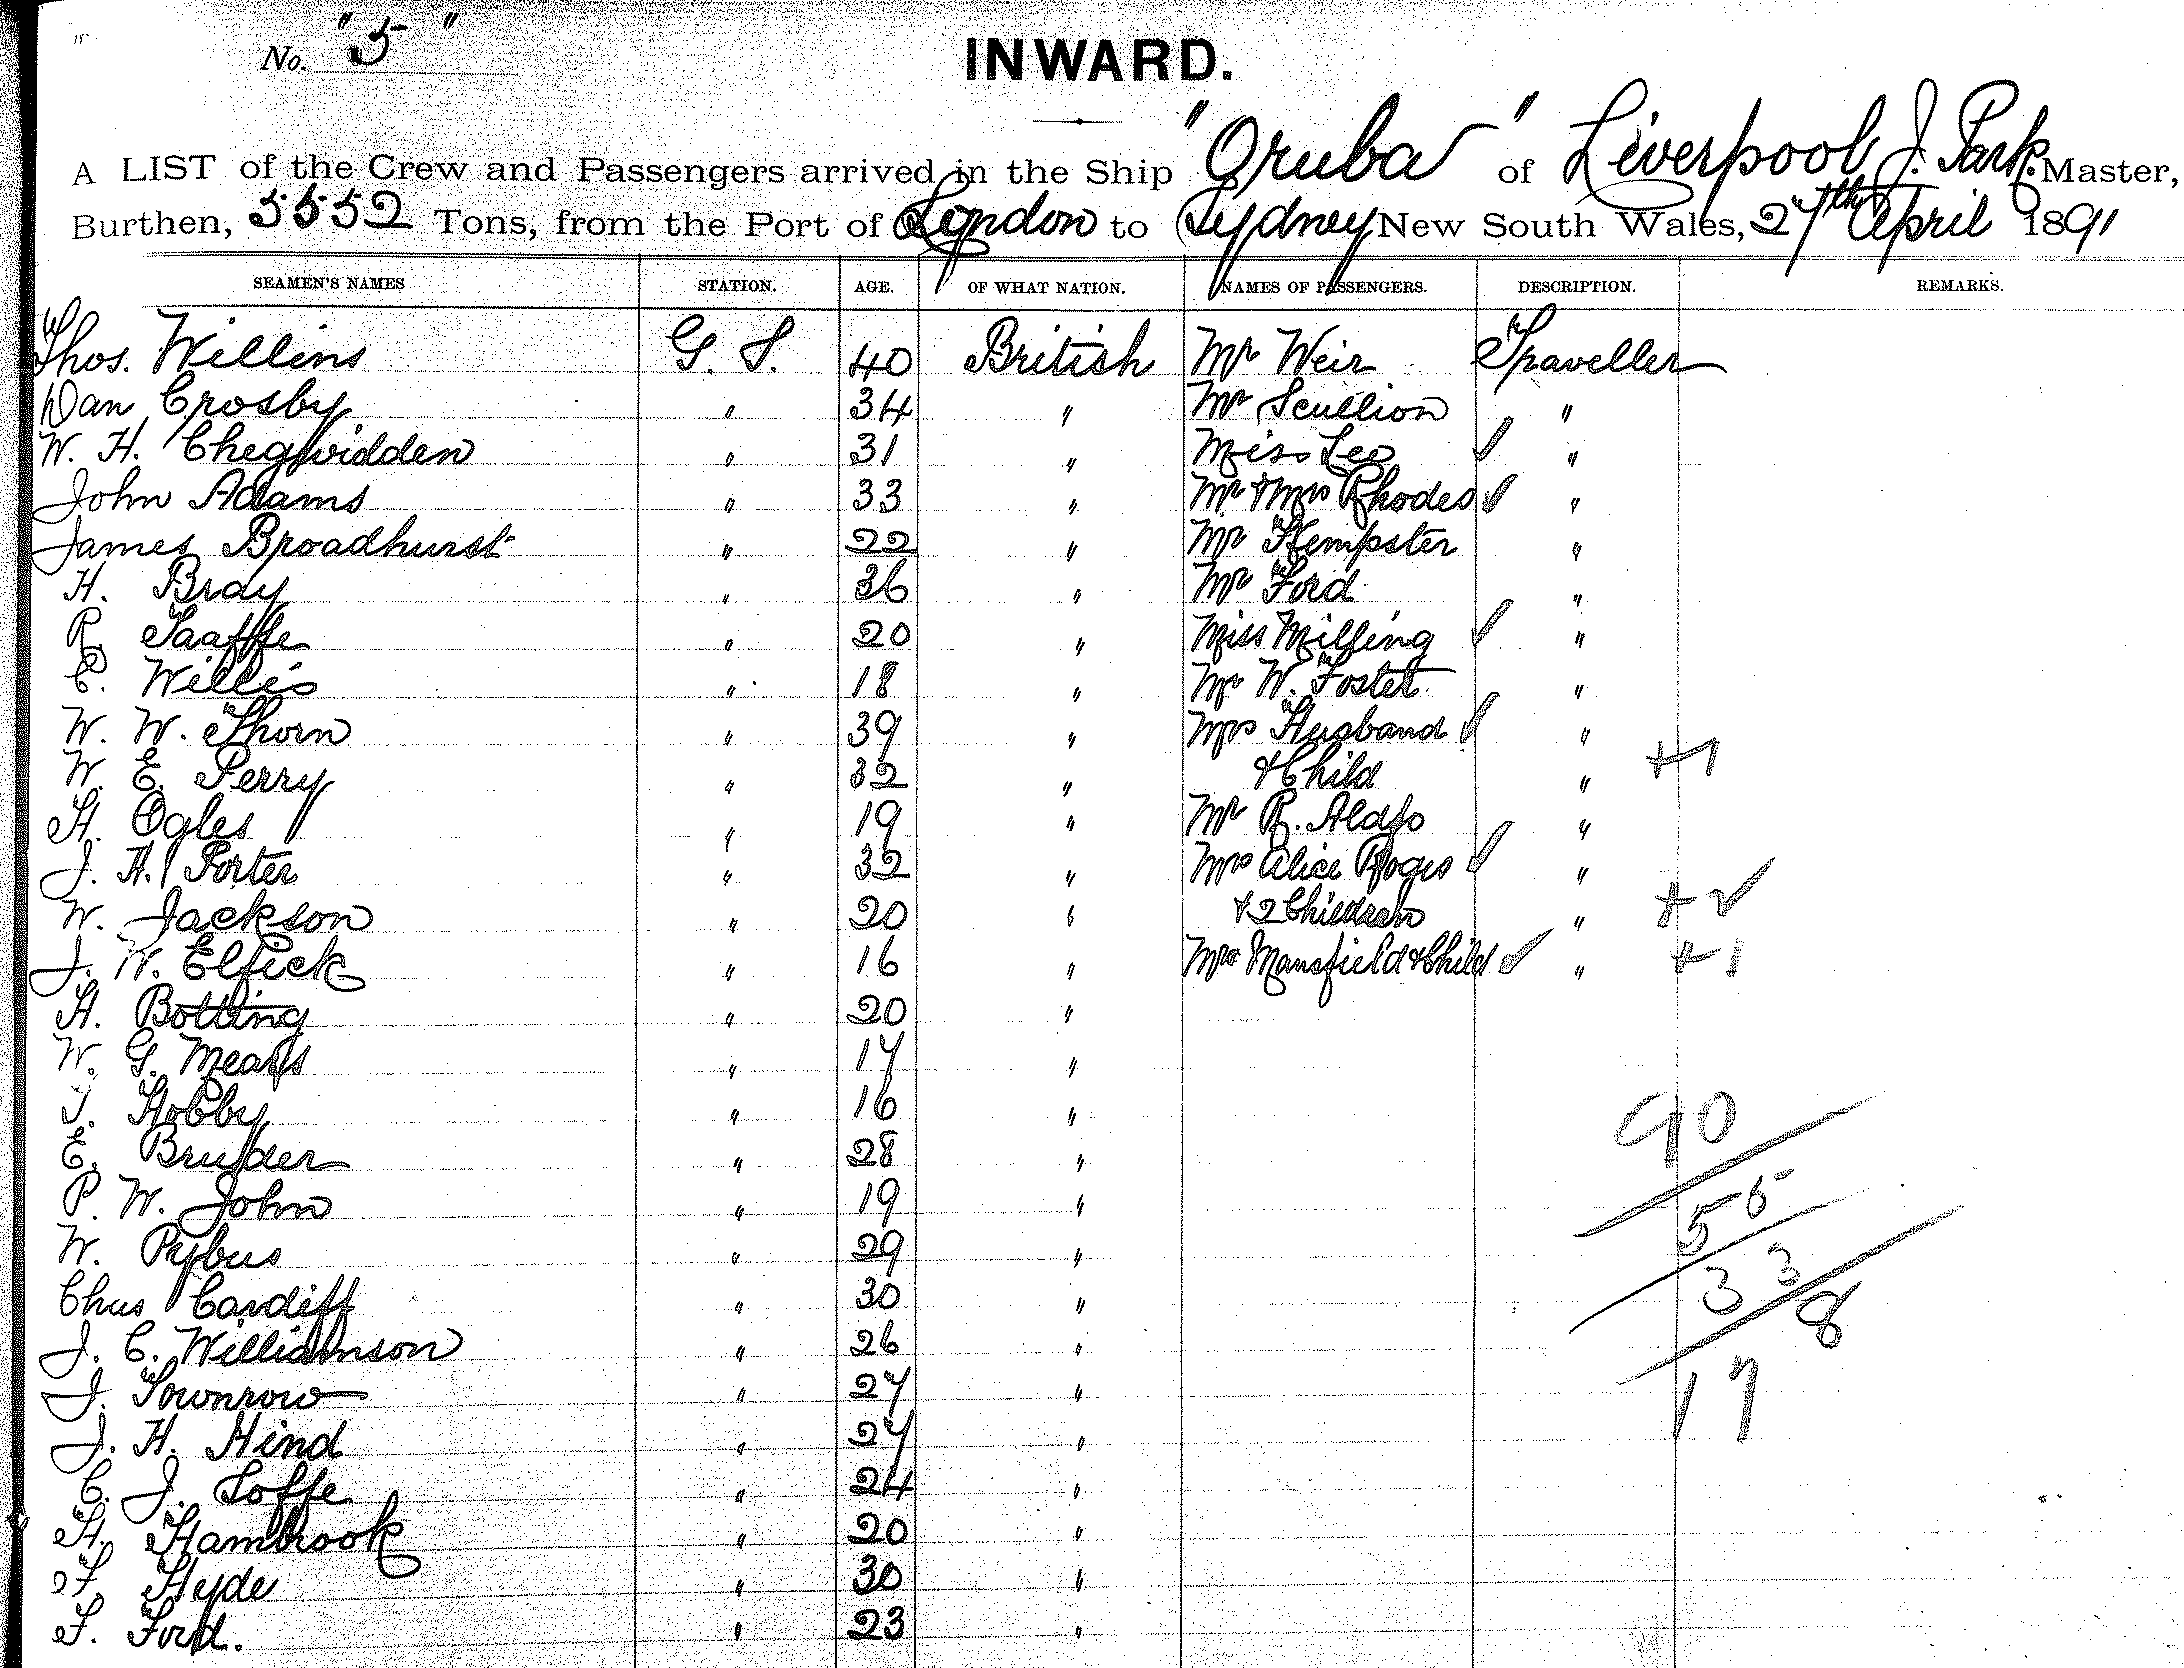 No. "5"
INWARD.
A LIST of the Crew and Passengers arrived in the Ship "Oruba" of Liverpool J. Park Master,
Burthen, 5552 Tons, from the Port of London to Sydney New South Wales, 27th April 1891
SEAMEN'S NAMES STATION. AGE. OF WHAT NATION. NAMES OF PASSENGERS. DESCRIPTION. REMARKS.
Thos. Willins G. S. 40 British Mr Weir Traveller
Dan Crosby " 34 " Mr Scullion "
W. H. Chegwidden " 31 " Miss Leo ✓ "
John Adams " 33 " Mr & Mrs Rhodes ✓ "
James Broadhurst " 22 " Mr Hempster "
H. Bray " 36 " Mr Ford "
R. Taaffe " 20 " Miss Milling ✓ "
C. Willis " 18 " Mr W. Foster "
W. W. Thorn " 39 " Mrs Husband ✓ "
W. E. Perry " 32 " & Child " +1
H. Ogles " 19 " Mr R. "
J. H. Porter " 32 " Mrs Alice ✓ "
W. Jackson " 20 " & 2 Children " +2 ✓
J. W. Elfick " 16 " Mrs Mansfield & Child ✓ " +1
H. Botting " 20 "
W. G. Mears " 17 "
T. Hobby " 16 "
E. " 28 "
P. W. John " 19 "
W. Pybus " 29 "
Chas Cardiff " 30 "
J. C. Williamson " 26 "
J. Townrow " 27 "
J. H. Hind " 27 "
C. J. Loffe " 24 "
H. Hambrook " 20 "
F. Hyde " 30 "
F. Ford. " 23 "
90
55
33
8
17